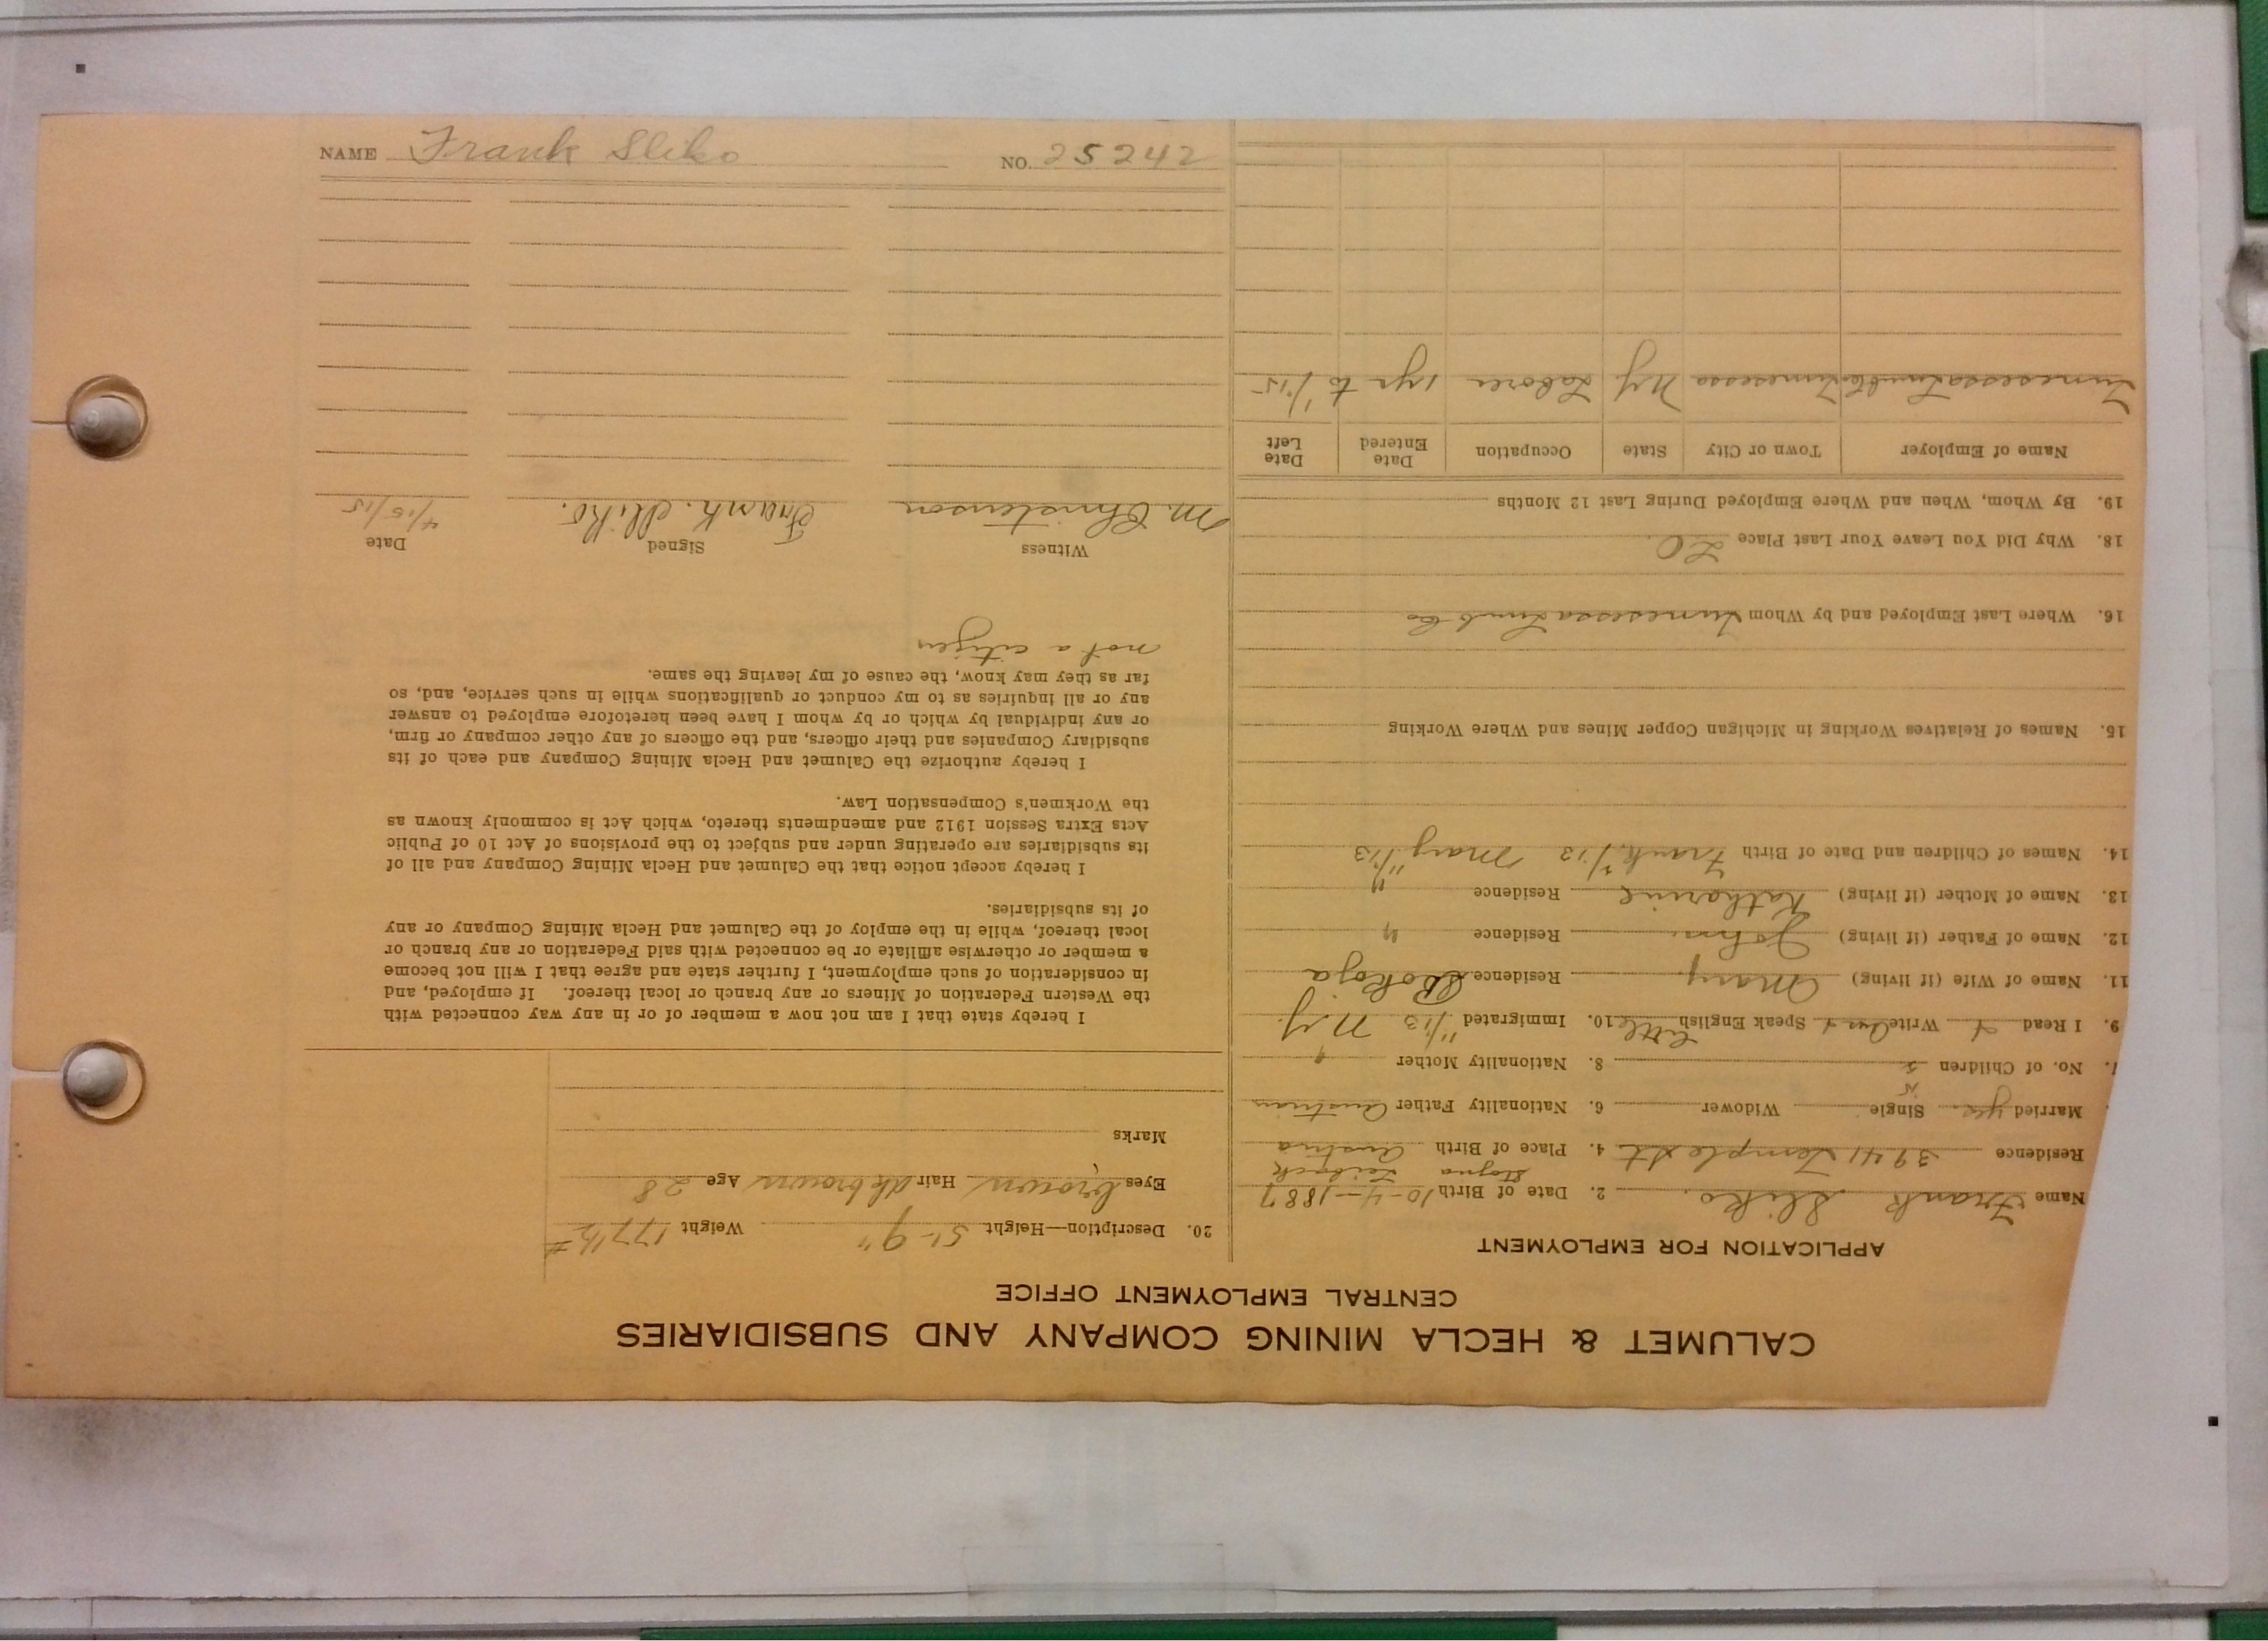 CALUMET & HECLA MINING COMPANY AND SUBSIDIARIES
CENTRAL EMPLOYMENT OFFICE
APPLICATION FOR EMPLOYMENT
Name Frank Sliko. 2. Date of Birth 10-4-1887
Residence 3941 Temple St 4. Place of Birth Austria
Married yes Single Widower 6. Nationality Father Austrian
No. of Children 8. Nationality Mother "
9. I Read Write Speak English little 10. Immigrated 11/13 N.Y.
11. Name of Wife (if living) Mary Residence
12. Name of Father (if living) John. Residence "
13. Name of Mother (if living) Katharine Residence "
14. Names of Children and Date of Birth Frank, /13 Mary 11/13
15. Names of Relatives Working in Michigan Copper Mines and Where Working
16. Where Last Employed and by Whom Tunesessa Lumb Co
18. Why Did You Leave Your Last Place LO.
19. By Whom, When and Where Employed During Last 12 Months
Name of Employer Town or City State Occupation Date Entered Date Left
Tunesessa Lumb Co Tunesessa NY Laborer 1 yr to 1/15
20. Description—Height 5'-9" Weight 177½ #
Eyes brown Hair dk brown Age 28
Marks
I hereby state that I am not now a member of or in any way connected with
the Western Federation of Miners or any branch or local thereof. If employed, and
in consideration of such employment, I further state and agree that I will not become
a member or otherwise affiliate or be connected with said Federation or any branch or
local thereof, while in the employ of the Calumet and Hecla Mining Company or any
of its subsidiaries.
I hereby accept notice that the Calumet and Hecla Mining Company and all of
its subsidiaries are operating under and subject to the provisions of Act 10 of Public
Acts Extra Session 1912 and amendments thereto, which Act is commonly known as
the Workmen's Compensation Law.
I hereby authorize the Calumet and Hecla Mining Company and each of its
subsidiary Companies and their officers, and the officers of any other company or firm,
or any individual by which or by whom I have been heretofore employed to answer
any or all inquiries as to my conduct or qualifications while in such service, and, so
far as they may know, the cause of my leaving the same.
not a citizen
Witness Signed Date
M. Christenson Frank Sliko. 4/15/15
NAME Frank Sliko NO. 25242